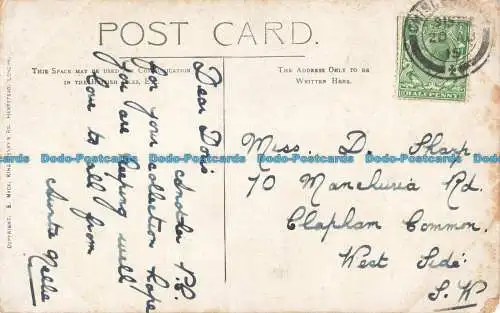 POST CARD.
THIS SPACE MAY BE USED FOR COMMUNICATION
IN THE BRITISH ISLES,
THE ADDRESS ONLY TO BE
WRITTEN HERE.
Dear Doris
Another P.C.
for your collection hope
you are keeping well
love to all from
Auntie Nellie
Miss. D. Sharp
70 Manchuria Rd.
Clapham Common.
West Side.
S.W
HALFPENNY
COPYRIGHT. E. MACK, KING HENRY'S RD. HAMPSTEAD, LONDON.
Dodo-Postcards Dodo-Postcards Dodo-Postcards Dodo-Postcards